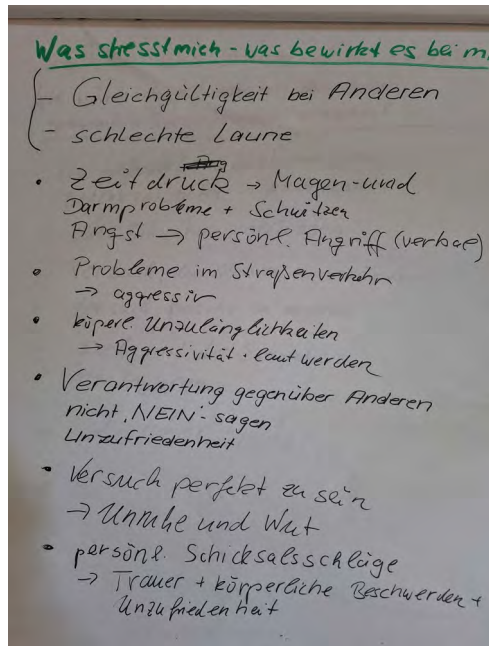 Was stresst mich - was bewirkt es bei m
- Gleichgültigkeit bei Anderen
- schlechte Laune
• Zeitdruck → Magen-und
Darmprobleme + Schwitzen
Angst → persönl. Angriff (verbal)
• Probleme im Straßenverkehr
→ aggressiv
• köperl. Unzulänglichkeiten
→ Aggressivität · laut werden
• Verantwortung gegenüber Anderen
nicht "NEIN"- sagen
Unzufriedenheit
• Versuch perfekt zu sein
→ Unruhe und Wut
• persönl. Schicksalsschläge
→ Trauer + körperliche Beschwerden +
Unzufriedenheit